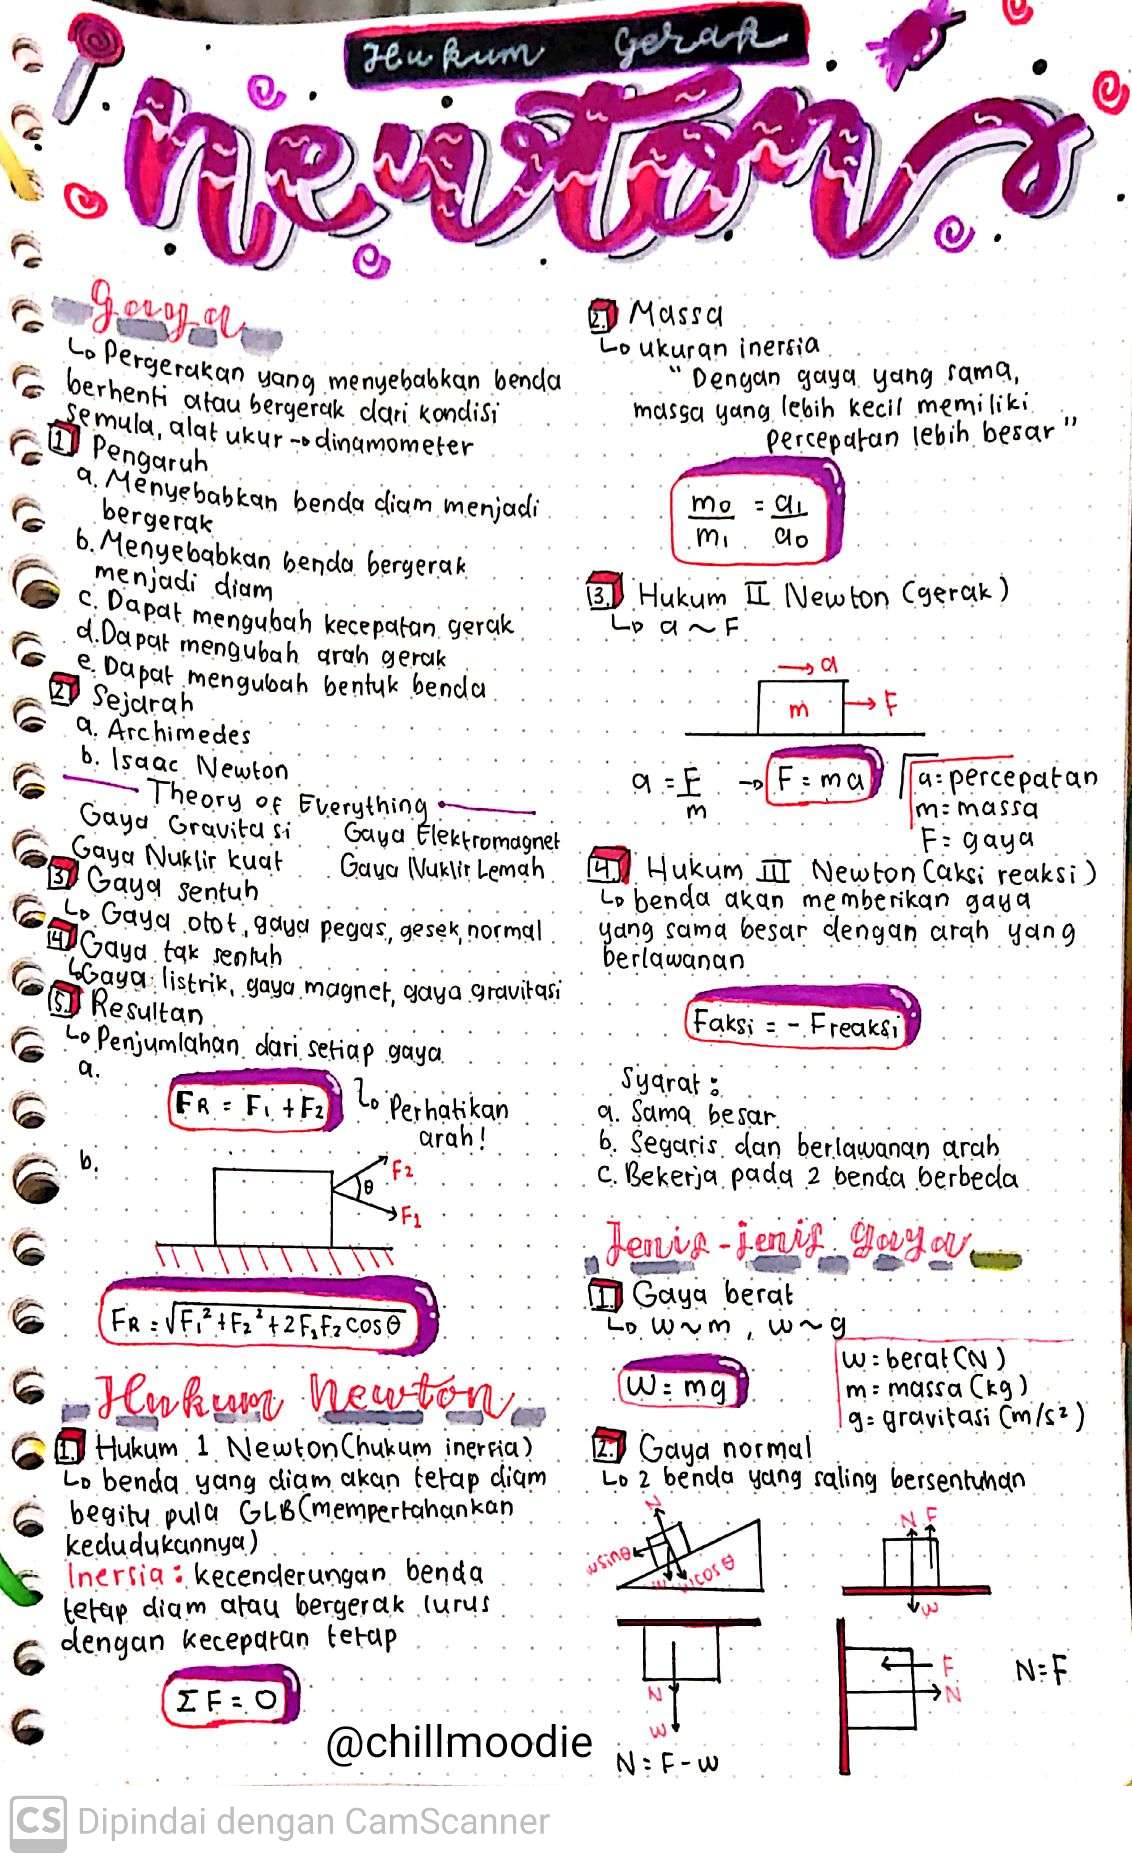 Hukum Gerak
newton
Gaya
↳ Pergerakan yang menyebabkan benda
berhenti atau bergerak dari kondisi
semula, alat ukur → dinamometer
1 Pengaruh
a. Menyebabkan benda diam menjadi
bergerak
b. Menyebabkan benda bergerak
menjadi diam
c. Dapat mengubah kecepatan gerak
d. Dapat mengubah arah gerak
e. Dapat mengubah bentuk benda
2 Sejarah
a. Archimedes
b. Isaac Newton
Theory of Everything
Gaya Gravitasi Gaya Elektromagnet
Gaya Nuklir kuat Gaya Nuklir Lemah
3 Gaya sentuh
↳ Gaya otot, gaya pegas, gesek, normal
4 Gaya tak sentuh
↳ Gaya listrik, gaya magnet, gaya gravitasi
5. Resultan
↳ Penjumlahan dari setiap gaya
a.
FR = F1 + F2 ↳ Perhatikan
arah!
b.
F2
θ
F1
FR = √F1² + F2² + 2F1F2 cos θ
Hukum Newton
1. Hukum 1 Newton (hukum inersia)
↳ benda yang diam akan tetap diam
begitu pula GLB (mempertahankan
kedudukannya)
Inersia : kecenderungan benda
tetap diam atau bergerak lurus
dengan kecepatan tetap
Σ F = 0
@chillmoodie
2. Massa
↳ ukuran inersia
"Dengan gaya yang sama,
massa yang lebih kecil memiliki
percepatan lebih besar"
m0/m1 = a1/a0
3. Hukum II Newton (gerak)
↳ a ~ F
→ a
m → F
a = F/m → F = ma
a = percepatan
m = massa
F = gaya
4. Hukum III Newton (aksi reaksi)
↳ benda akan memberikan gaya
yang sama besar dengan arah yang
berlawanan
Faksi = - Freaksi
Syarat :
a. Sama besar
b. Segaris dan berlawanan arah
c. Bekerja pada 2 benda berbeda
Jenis-jenis gaya
1. Gaya berat
↳ w ~ m , w ~ g
W = mg
w = berat (N)
m = massa (kg)
g = gravitasi (m/s²)
2. Gaya normal
↳ 2 benda yang saling bersentuhan
N
w sin θ
w
w cos θ
N F
w
N
w
N = F - w
F
N
N = F
CS Dipindai dengan CamScanner